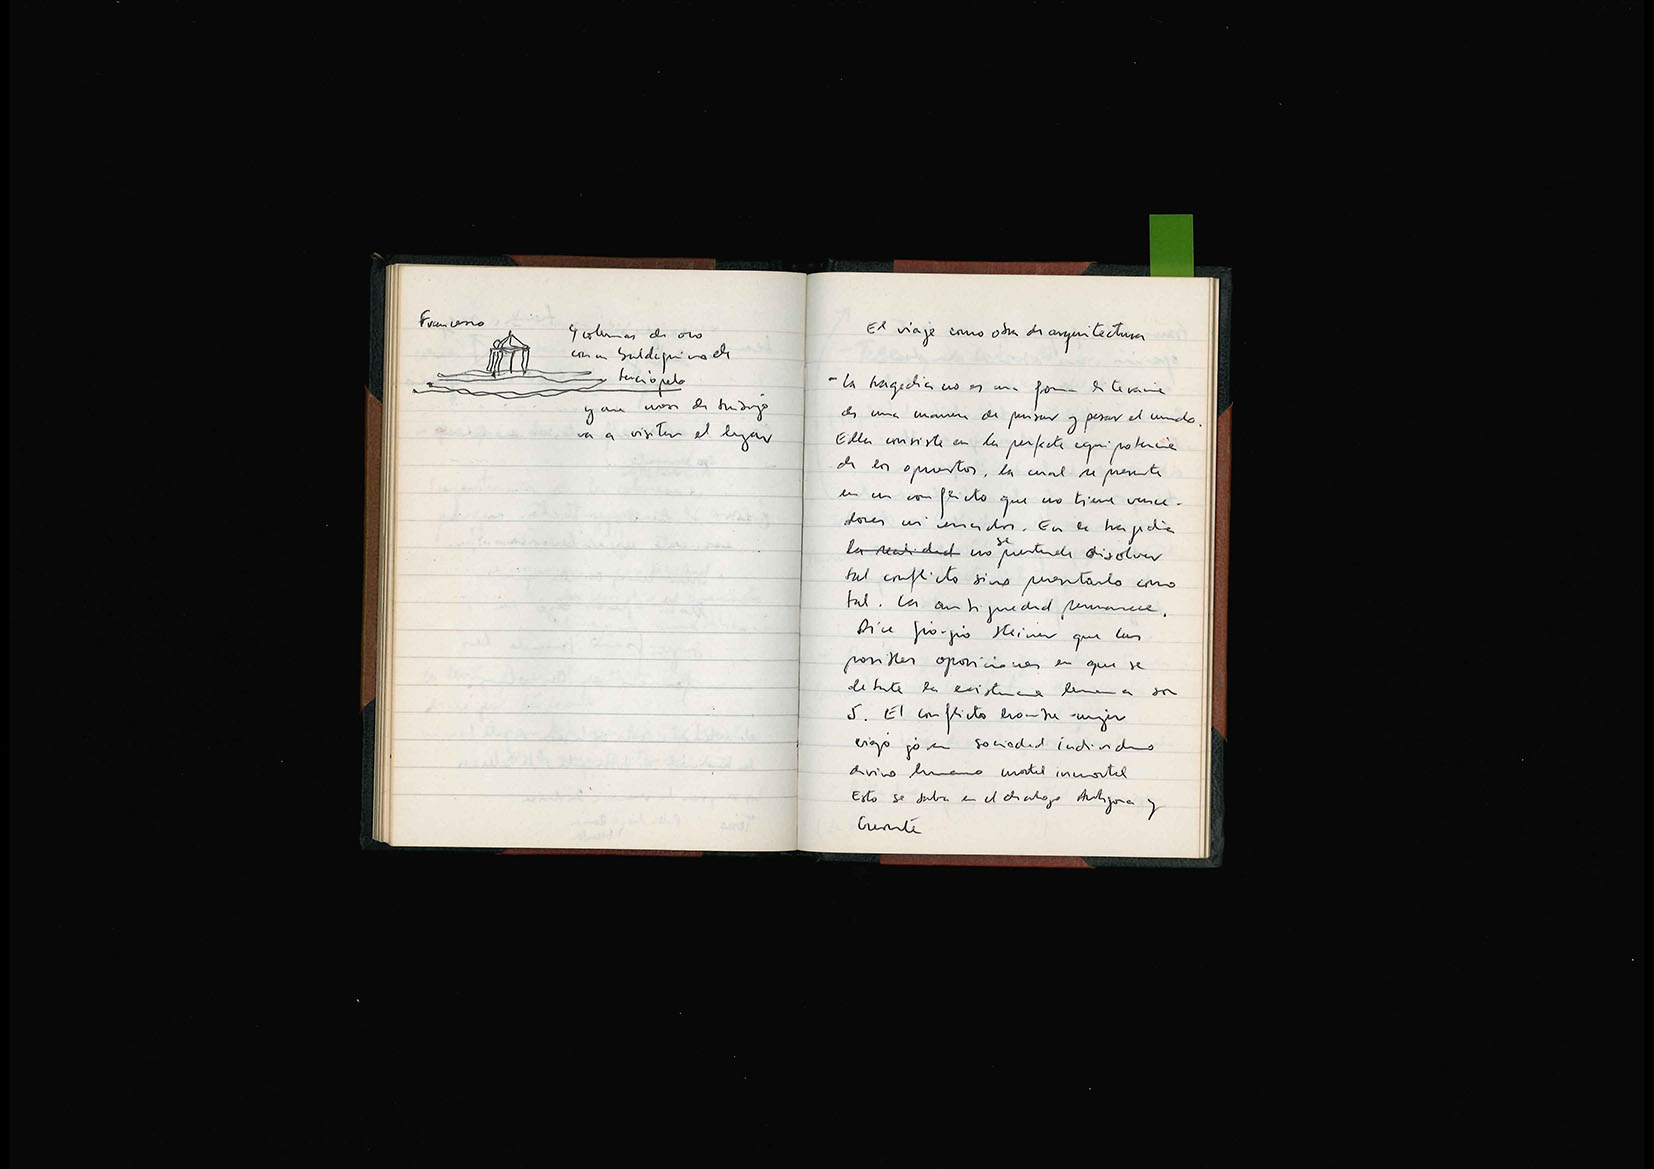 Francesco
4 columnas de oro
con un baldaquino de
terciopelo
y una de
va a visitar el lugar
El viaje como obra de arquitectura
- La tragedia no es una forma literaria
es una manera de pensar y pesar el mundo.
Ella consiste en la perfecta equipotencia
de los opuestos, la cual se presenta
en un conflicto que no tiene vence-
dores ni vencidos. En la tragedia
la realidad no se pretende disolver
tal conflicto sino presentarlo como
tal. La ambiguedad permanece.
Dice Steiner que las
posibles oposiciones en que se
debate la existencia humana son
5. El conflicto hombre-mujer
viejo joven sociedad individuo
divino humano mortal inmortal
Esto se en el dialogo Antigona y
Creonte